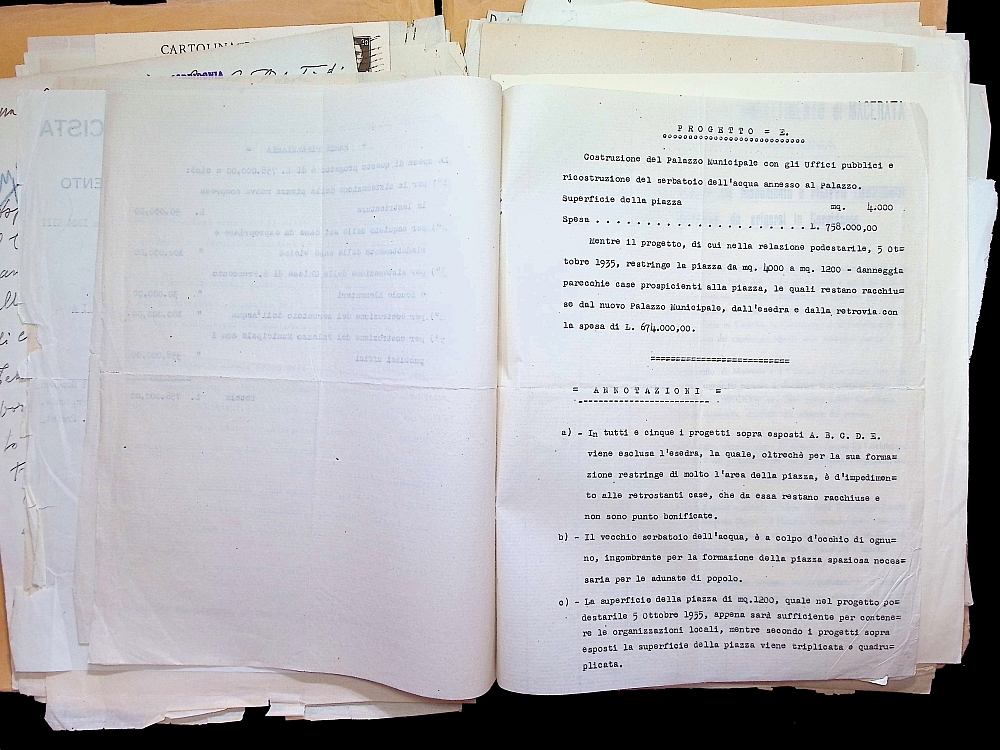 CARTOLINA
PROGETTO = E.
Costruzione del Palazzo Municipale con gli Uffici pubblici e
ricostruzione del serbatoio dell'acqua annesso al Palazzo.
Superficie della piazza mq. 4.000
Spesa . . . . . . . . . . . . . . . . . . . . . . L. 758.000,00
Mentre il progetto, di cui nella relazione podestarile, 5 Ot=
tobre 1935, restringe la piazza da mq. 4000 a mq. 1200 - danneggia
parecchie case prospicienti alla piazza, le quali restano racchiu=
se dal nuovo Palazzo Municipale, dall'esedra e dalla retrovia con
la spesa di L. 674.000,00.
==========================
= ANNOTAZIONI =
a) - In tutti e cinque i progetti sopra esposti A. B. C. D. E.
viene esclusa l'esedra, la quale, oltrechè per la sua forma=
zione restringe di molto l'area della piazza, è d'impedimen=
to alle retrostanti case, che da essa restano racchiuse e
non sono punto bonificate.
b) - Il vecchio serbatoio dell'acqua, è a colpo d'occhio di ognu=
no, ingombrante per la formazione della piazza spaziosa neces=
saria per le adunate di popolo.
c) - La superficie della piazza di mq.1200, quale nel progetto po=
destarile 5 Ottobre 1935, appena sarà sufficiente per contene=
re le organizzazioni locali, mentre secondo i progetti sopra
esposti la superficie della piazza viene triplicata e quadru=
plicata.